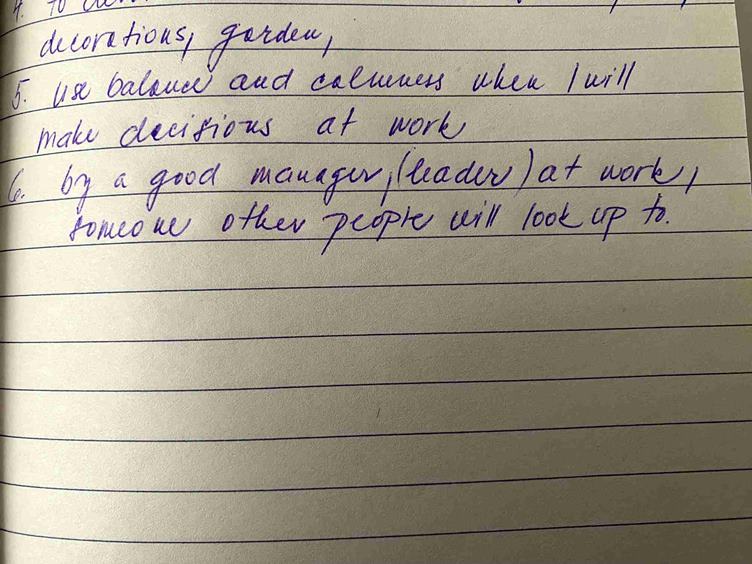 4. to
decorations, garden,
5. use balance and calmness when I will
make decisions at work
6. by a good manager, (leader) at work,
someone other people will look up to.